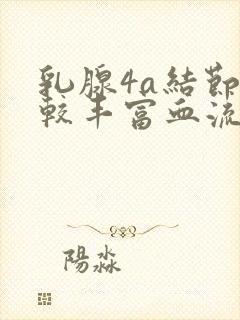 乳腺4a結節
較丰富血流
陽淼